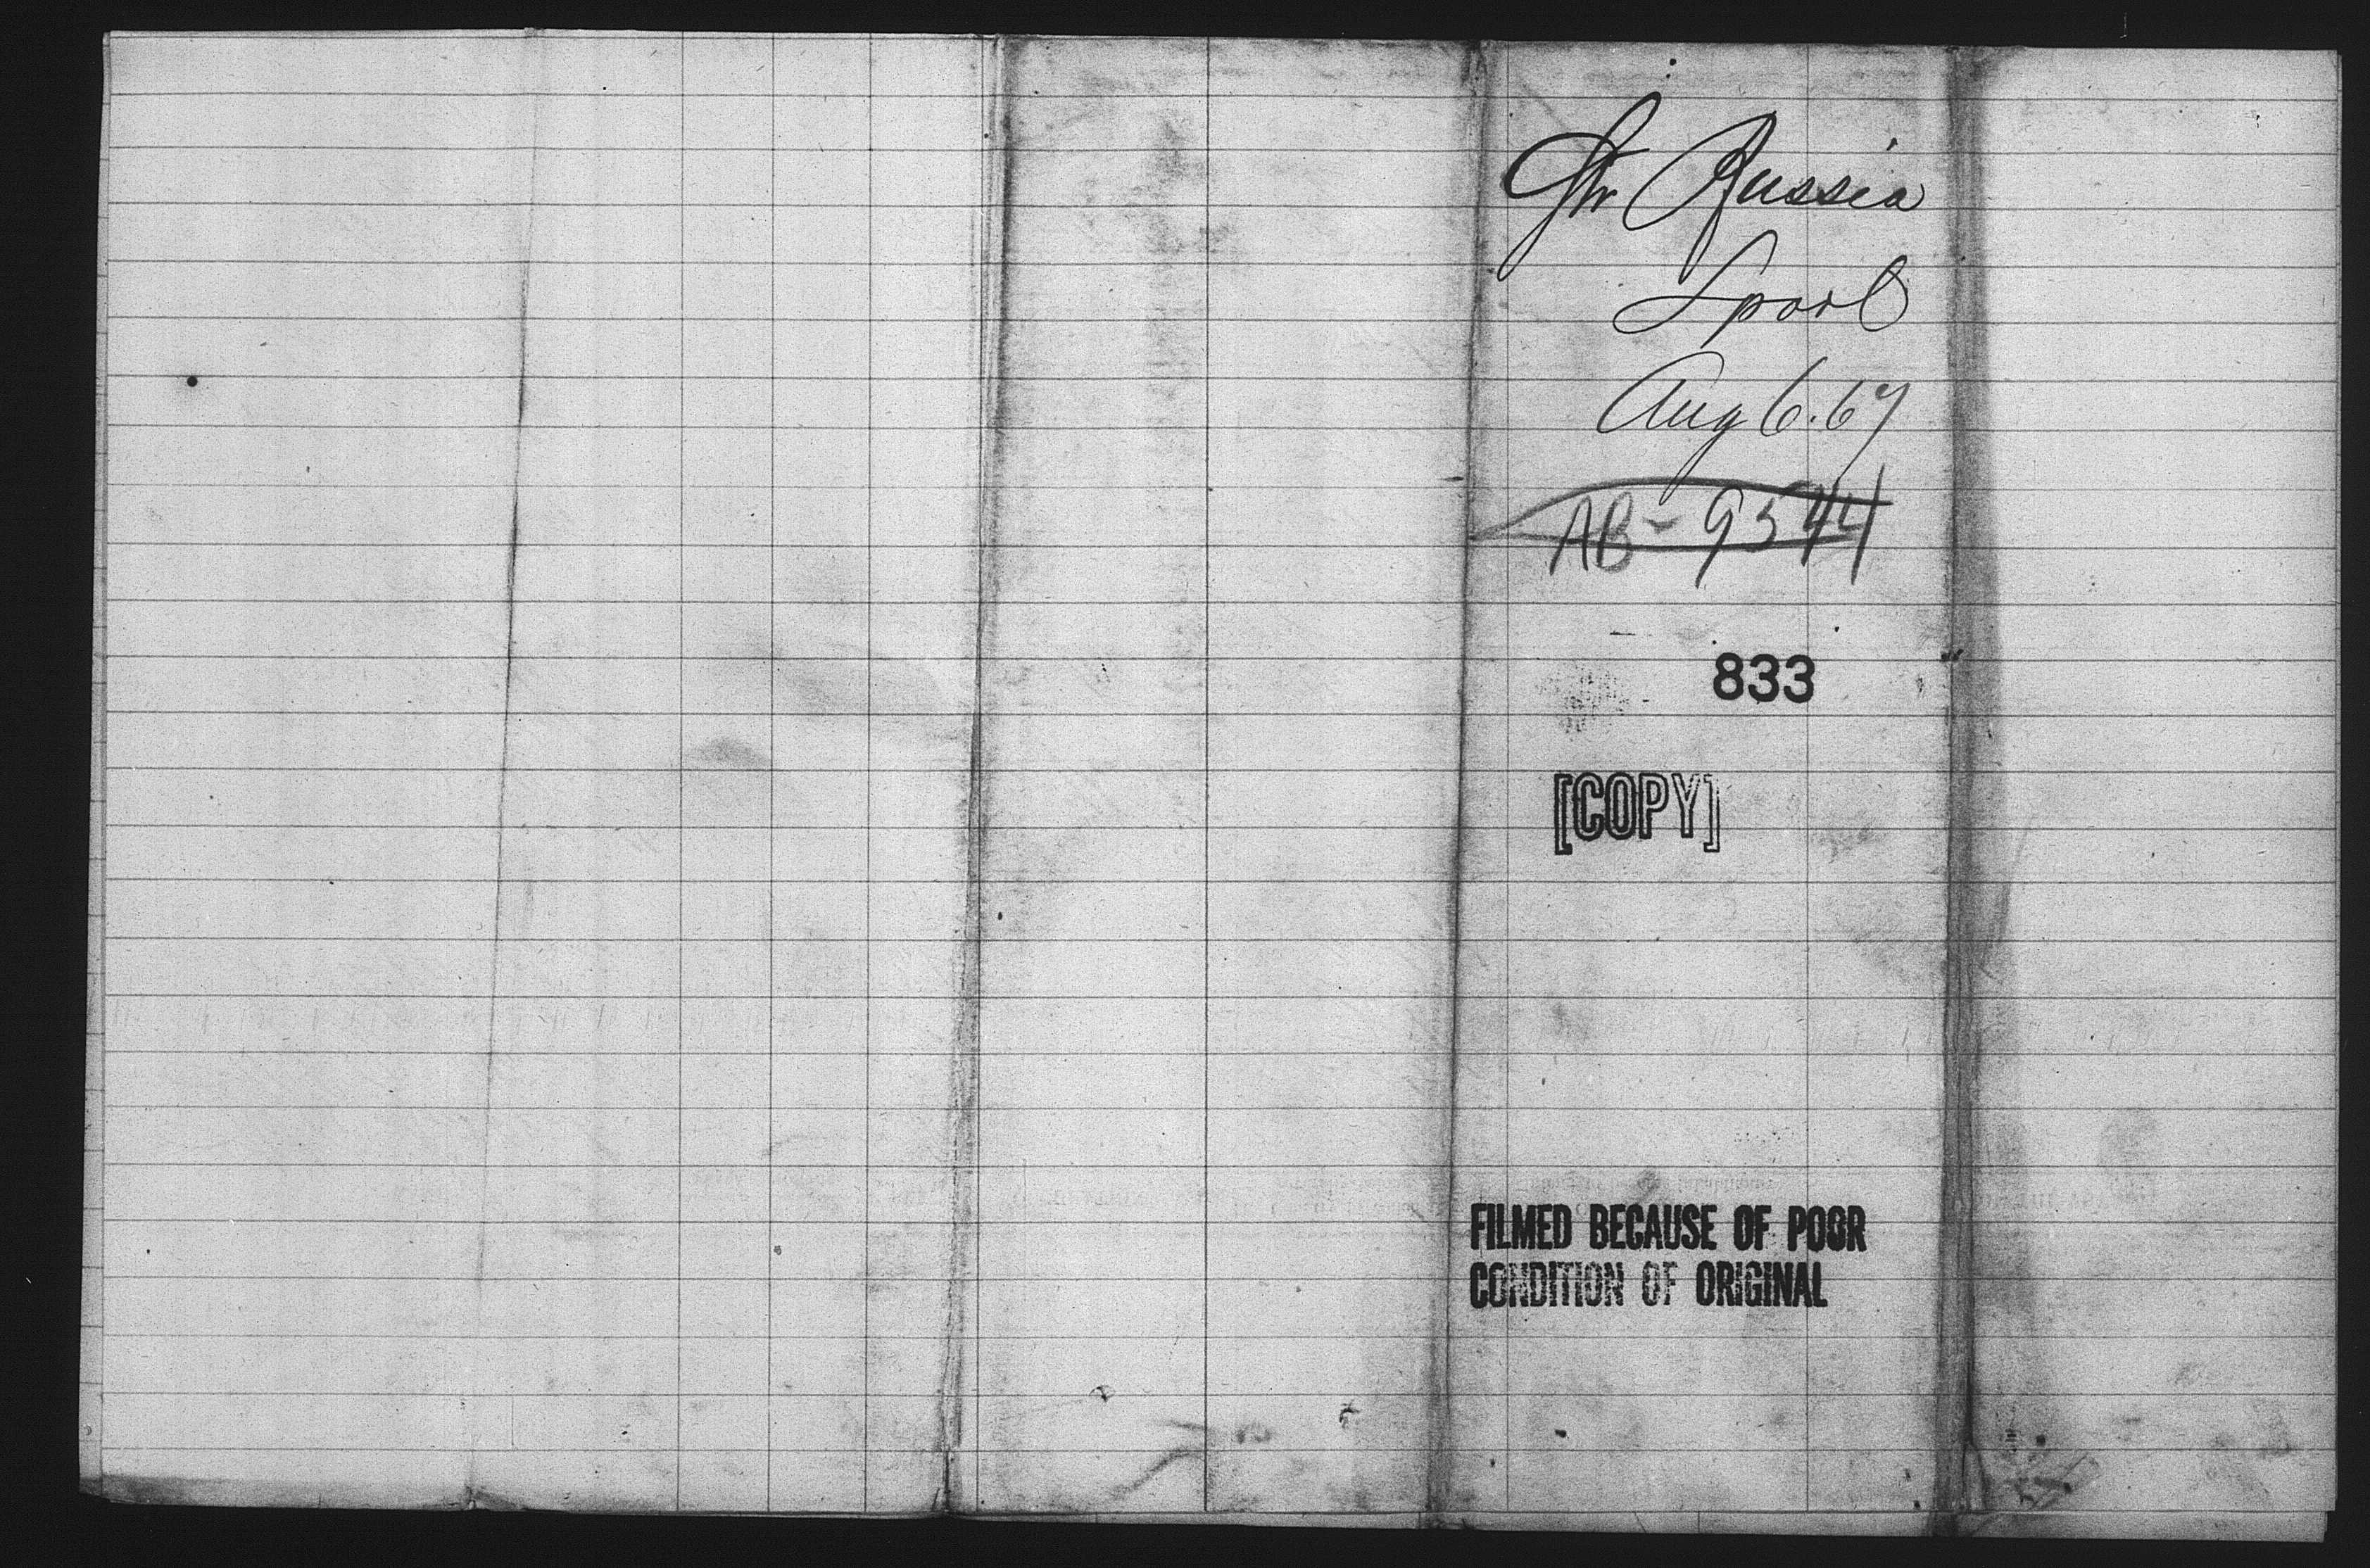 Str Russia
Lpool
Aug 6. 67
AB - 9544
833
[COPY]
FILMED BECAUSE OF POOR
CONDITION OF ORIGINAL